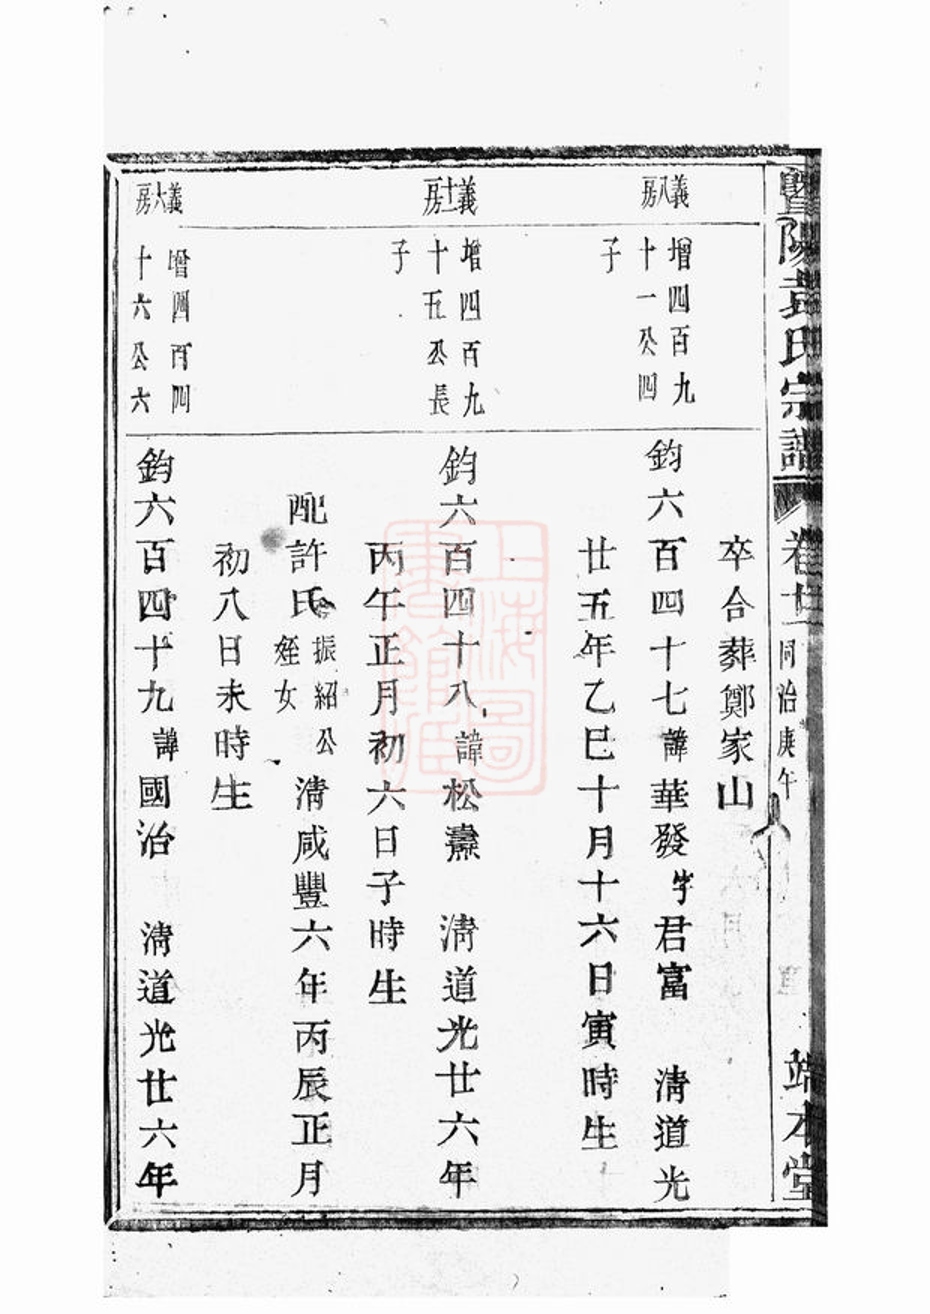 暨陽袁氏宗譜
卷廿
同治庚午
端本堂
卒合葬鄭家山
義八房
增四百九
十一公四
子
鈞六百四十七諱華發字君富 清道光
廿五年乙巳十月十六日寅時生
義十一房
增四百九
十五公長
子
鈞六百四十八諱松燾 清道光廿六年
丙午正月初六日子時生
配許氏振紹公姪女 清咸豐六年丙辰正月
初八日未時生
義六房
增四百四
十六公六
鈞六百四十九諱國治 清道光廿六年
上海圖書館藏